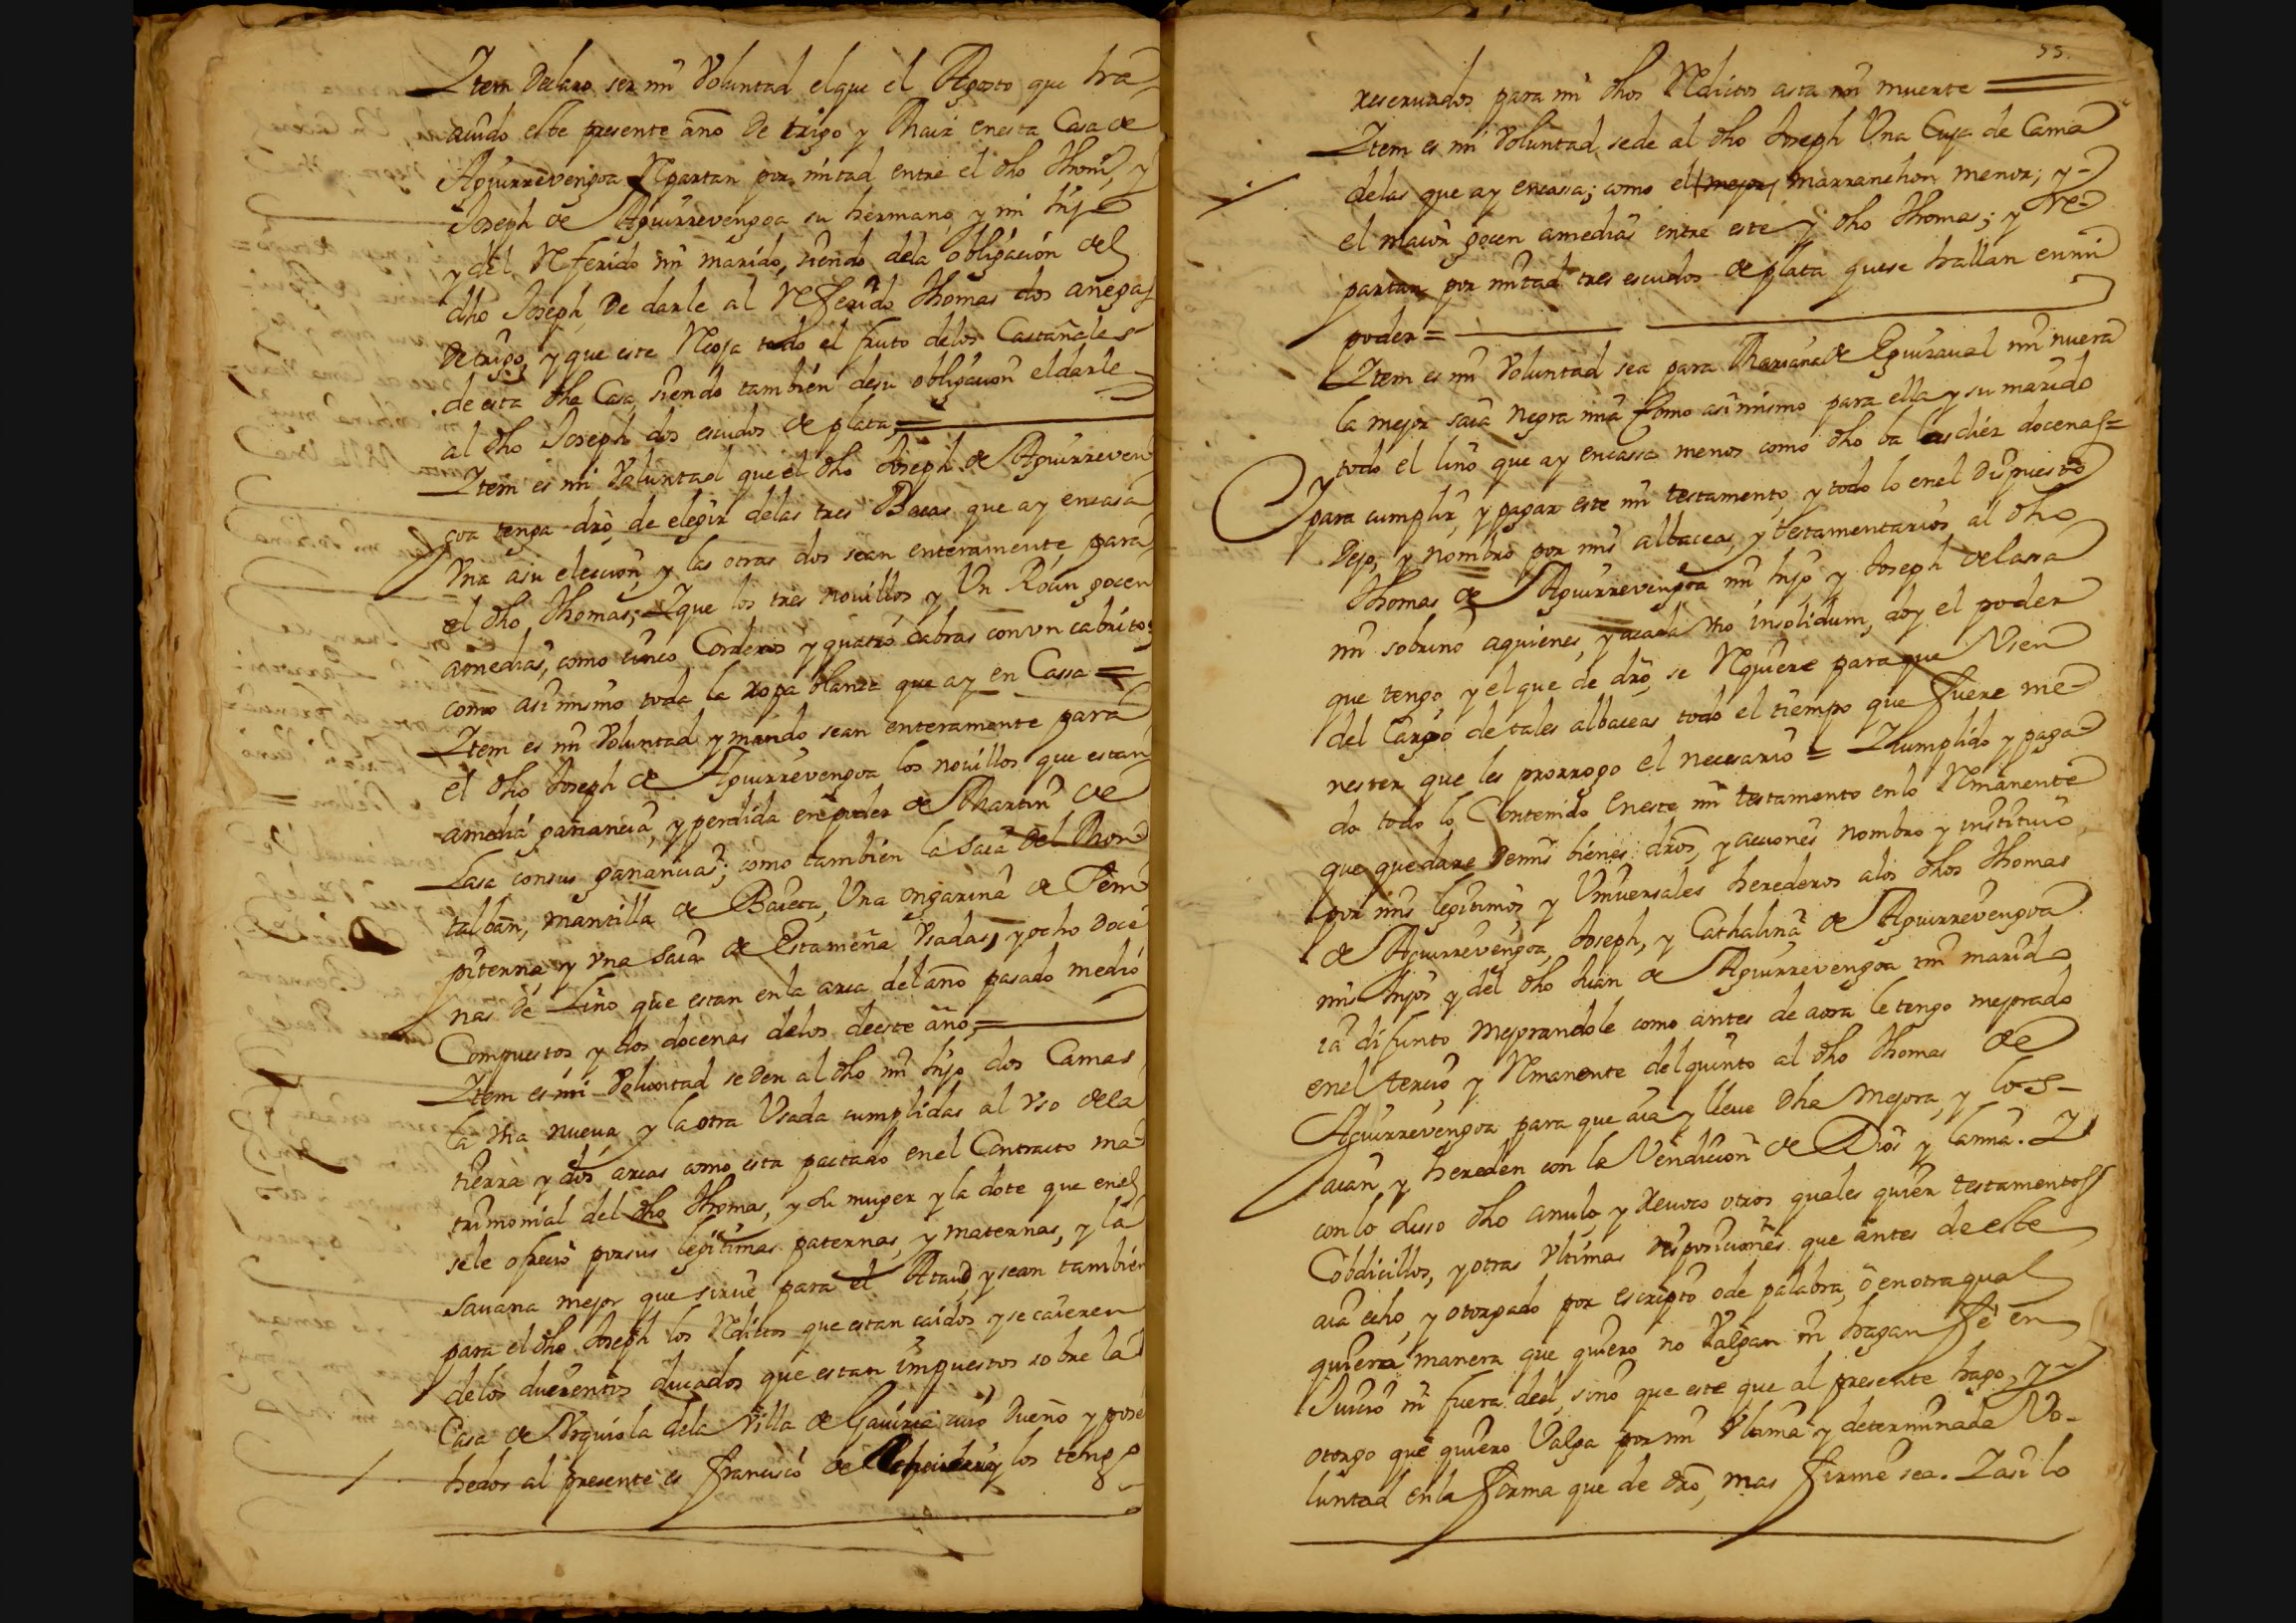 Ytem Declaro ser mi Voluntad elque el Agosto que ha
auido este presente año De trigo y Maiz enesta Casa de
Aguirrevengoa Repartan por mitad entre el dho Thom.s y
Joseph de Aguirrevengoa su hermano, y mi hijo
y del Referido mi marido, siendo dela obligación del
dho Joseph, De darle al Referido Thomas dos anegas
de trigo, y que este Recoja todo el fruto delos Castañales
de esta dha Casa, siendo también desu obligacion eldarle
al dho Joseph dos escudos de plata,=
Ytem es mi Voluntad que el dho Joseph de Aguirreven
goa tenga dro, de elegir delas tres Bacas que ay encasa
Vna asu eleccion, y las otras dos sean enteramente para
el dho Thomas; Yque los tres nouillos, y Un Rocin gocen
amedias, como cinco Corderos y quatro cabras convn cabrito;
como asimismo toda la ropa blanca que ay en Cassa =
Ytem es mi Voluntad y mando sean enteramente para
el dho Joseph de Aguirrevengoa los nouillos que estan
amedia ganancia, y perdida enpoder de Martin de
Lasa consus ganancias; como también la Saia Del Mon
talban, mantilla de Baieta, Una ongarina de Pem
piterna, y vna Saia de Estameña Vsadas, y ocho Doce
nas De Lino que estan enla arca del año pasado medio
Compuestos y dos docenas delos deeste año,=
Ytem es mi Voluntad se Den al dho mi hijo dos Camas
la Vna nueua, y la otra Vsada cumplidas al vso dela
tierra y dos arcas como esta pactado enel Contracto ma
trimonial del dho Thomas, y su muger y la dote que enel
sele ofrecio porsus legitimas paternas, y maternas, y la
Sauana mejor que sirue para el Ataud, y sean también
para el dho Joseph los Reditos que estan caidos, y se caieren
delos ducientos ducados que estan impuestos sobre la
Casa de Vrguiola dela Villa de Gauiria cuio Dueño y pose
hedor al presente es Francisco de los tengo
55
reseruados para mi dhos Reditos asta mi muerte =
Ytem es mi Voluntad, sede al dho Joseph Una Cuja de Cama
delas que ay encassa; como el mejor marranchon menor; y
el maior gocen amedias entre este y dho Thomas; y Re
partan por mitad tres escudos de plata quese hallan enmi
poder =
Ytem es mi Voluntad sea para Mariana de Eguizaual mi nuera
la mejor saia negra mia Como asimismo para ella y su marido
todo el lino que ay encassa menos como dho ba las diez docenas=
Y para cumplir, y pagar este mi testamento, y todo lo enel Dispuesto
Dejo, y nombro por mis albaceas, y testamentarios, al dho
Thomas de Aguirrevengoa mi hijo y Joseph de Lasa
mi sobrino aquienes, y acada Vno insolidum, doy el poder
que tengo, y elque de dro, se Requiere paraque Vsen
del Cargo de tales albaceas todo el tiempo que fuere me
nester que les prorrogo el necesario = Ycumplido y paga
do todo lo Contenido Eneste mi testamento enlo Remanente
que quedare Demis bienes, dros, y acciones nombro y instituio
por mis legitimos, y Vniuersales herederos alos dhos Thomas
de Aguirrevengoa, Joseph, y Cathalina de Aguirrevengoa
mis hijos y del dho Juan de Aguirrevengoa mi marido
ia difunto mejorandole como antes de aora le tengo mejorado
enel tercio, y Remanente delquinto al dho Thomas de
Aguirrevengoa para que aia y lleue dha Mejora, y los
aian y hereden con la Vendicion de Dios y la mia. Y
con lo suso dho anulo, y reuoco otros quales quier testamentos
Cobdicillos, y otras vltimas Disposiciones que antes de este
aia echo, y otorgado por escripto ode palabra, o enotraqual
quiera manera que quiero no Valgan ni hagan fe en
Juicio ni fuera deel, sino que este que al presente hago, y
otorgo que quiero Valga por mi Vltima y determinada Vo-
luntad enla forma que de dro, mas firme sea. Yasi lo